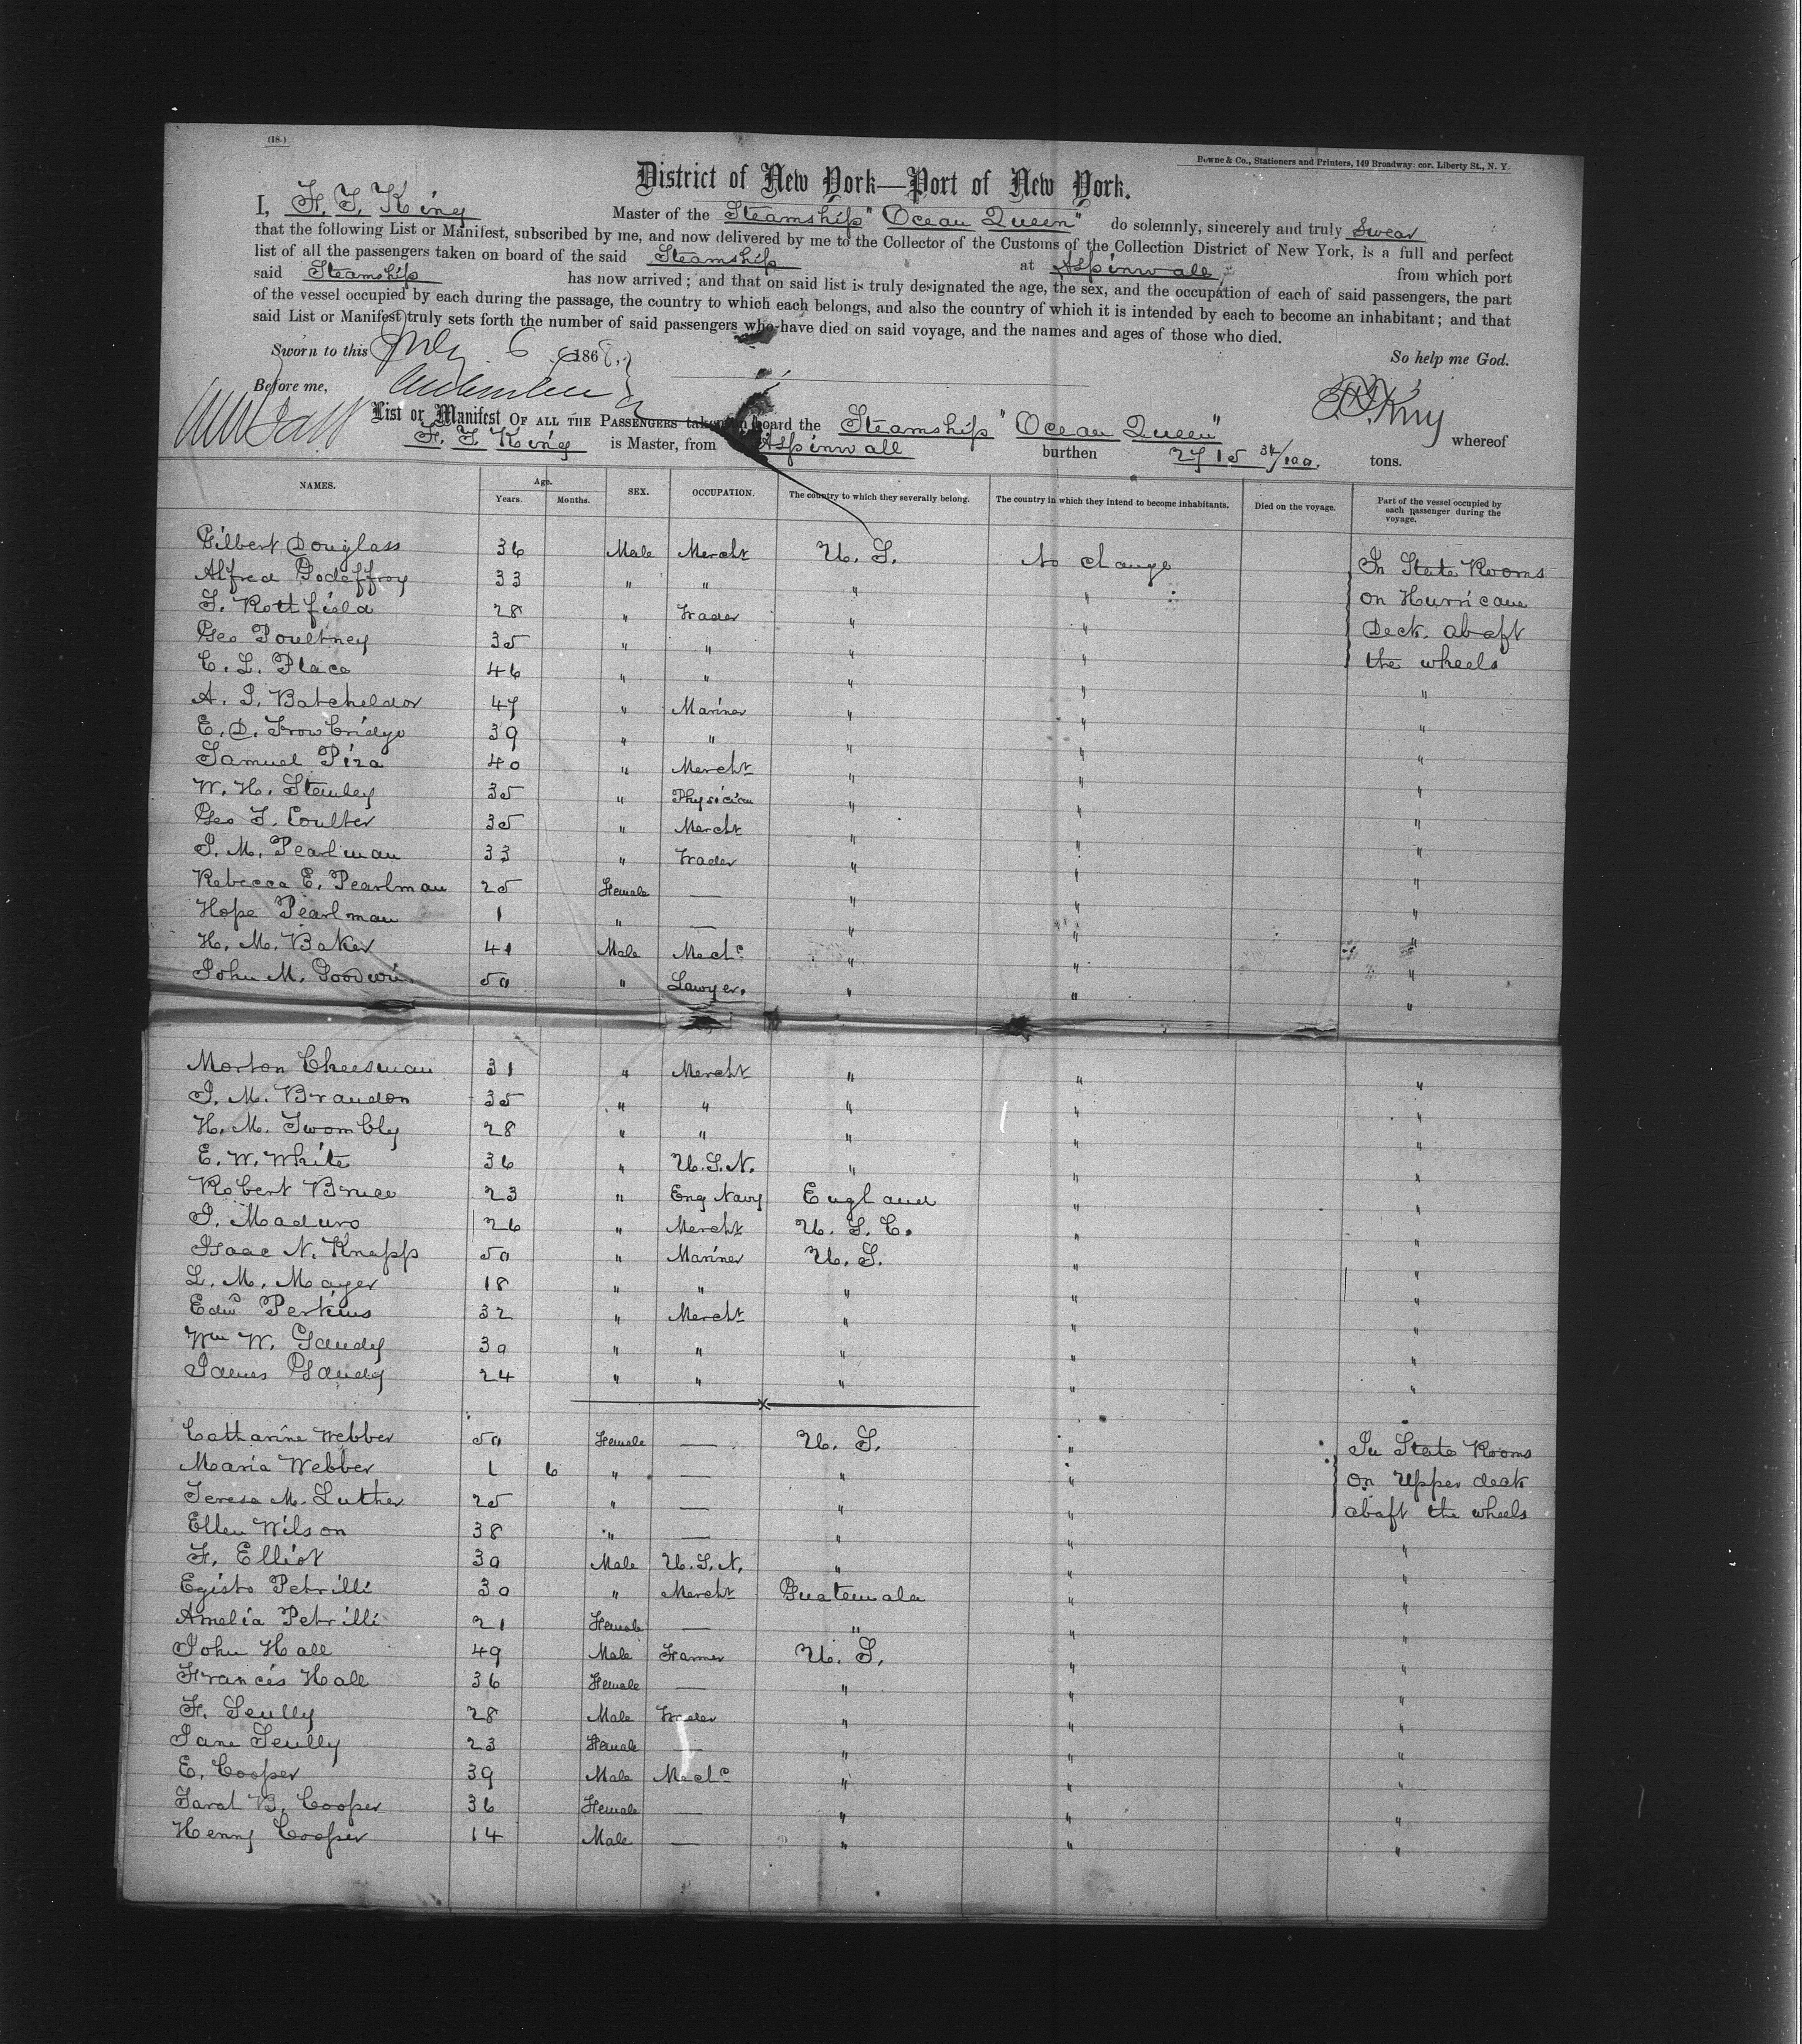 (18.)
Bowne & Co., Stationers and Printers, 149 Broadway. cor. Liberty St., N. Y.
District of New York—Port of New York.
I, F. T. King Master of the Steamship "Ocean Queen" do solemnly, sincerely and truly Swear
that the following List or Manifest, subscribed by me, and now delivered by me to the Collector of the Customs of the Collection District of New York, is a full and perfect
list of all the passengers taken on board of the said Steamship at Aspinwall from which port
said Steamship has now arrived; and that on said list is truly designated the age, the sex, and the occupation of each of said passengers, the part
of the vessel occupied by each during the passage, the country to which each belongs, and also the country of which it is intended by each to become an inhabitant; and that
said List or Manifest truly sets forth the number of said passengers who have died on said voyage, and the names and ages of those who died.
Sworn to this July 6 1868, So help me God.
Before me,
List or Manifest OF ALL THE PASSENGERS taken on board the Steamship "Ocean Queen" whereof
F. T. King is Master, from Aspinwall burthen 2715 34/100. tons.
NAMES. Age. Years. Months. SEX. OCCUPATION. The country to which they severally belong. The country in which they intend to become inhabitants. Died on the voyage. Part of the vessel occupied by each passenger during the voyage.
Gilbert Douglass 36 Male Mercht U. S. No change In State Rooms
Alfred Godeffroy 33 " " " " on Hurricane
S. Rottfield 28 " Trader " " Deck. abaft
Geo Poultney 35 " " " " the wheels
C. L. Place 46 " " " " "
A. S. Batcheldor 47 " Mariner " " "
E. D. Trowbridge 39 " " " " "
Samuel Piza 40 " Mercht " " "
W. H. Stanley 35 " Physician " " "
Geo F. Coulter 35 " Mercht " " "
I. M. Pearlman 33 " Trader " " "
Rebecca E. Pearlman 25 Female — " " "
Hope Pearlman 1 " — " " "
H. M. Baker 41 Male Mechc " " "
John M. Goodwin 50 " Lawyer. " " "
Morton Cheesman 31 " Mercht " " "
I. M. Brandon 35 " " " " "
H. M. Twombly 28 " " " " "
E. W. White 36 " U.S.N. " " "
Robert Bruce 23 " Eng Navy England " "
I. Maduro 26 " Mercht U. S. C. " "
Isaac N. Knapp 50 " Mariner U. S. " "
L. M. Mayer 18 " " " " "
Edwd Perkins 32 " Mercht " " "
Wm W. Gaudy 30 " " " " "
James Gaudy 24 " " " " "
Catharine Webber 50 Female — U. S. " In State Rooms
Maria Webber 1 6 " — " " on Upper deck
Teresa M. Luther 25 " — " " abaft the wheels
Ellen Wilson 38 " — " " "
F. Elliot 30 Male U.S.N. " " "
Egisto Petrilli 30 " Mercht Guatemala " "
Amelia Petrilli 21 Female — " " "
John Hall 49 Male Farmer U. S. " "
Francis Hall 36 Female — " " "
F. Scully 28 Male Trader " " "
Jane Scully 23 Female — " " "
E. Cooper 39 Male Mechc " " "
Sarah B. Cooper 36 Female — " " "
Henry Cooper 14 Male — " " "